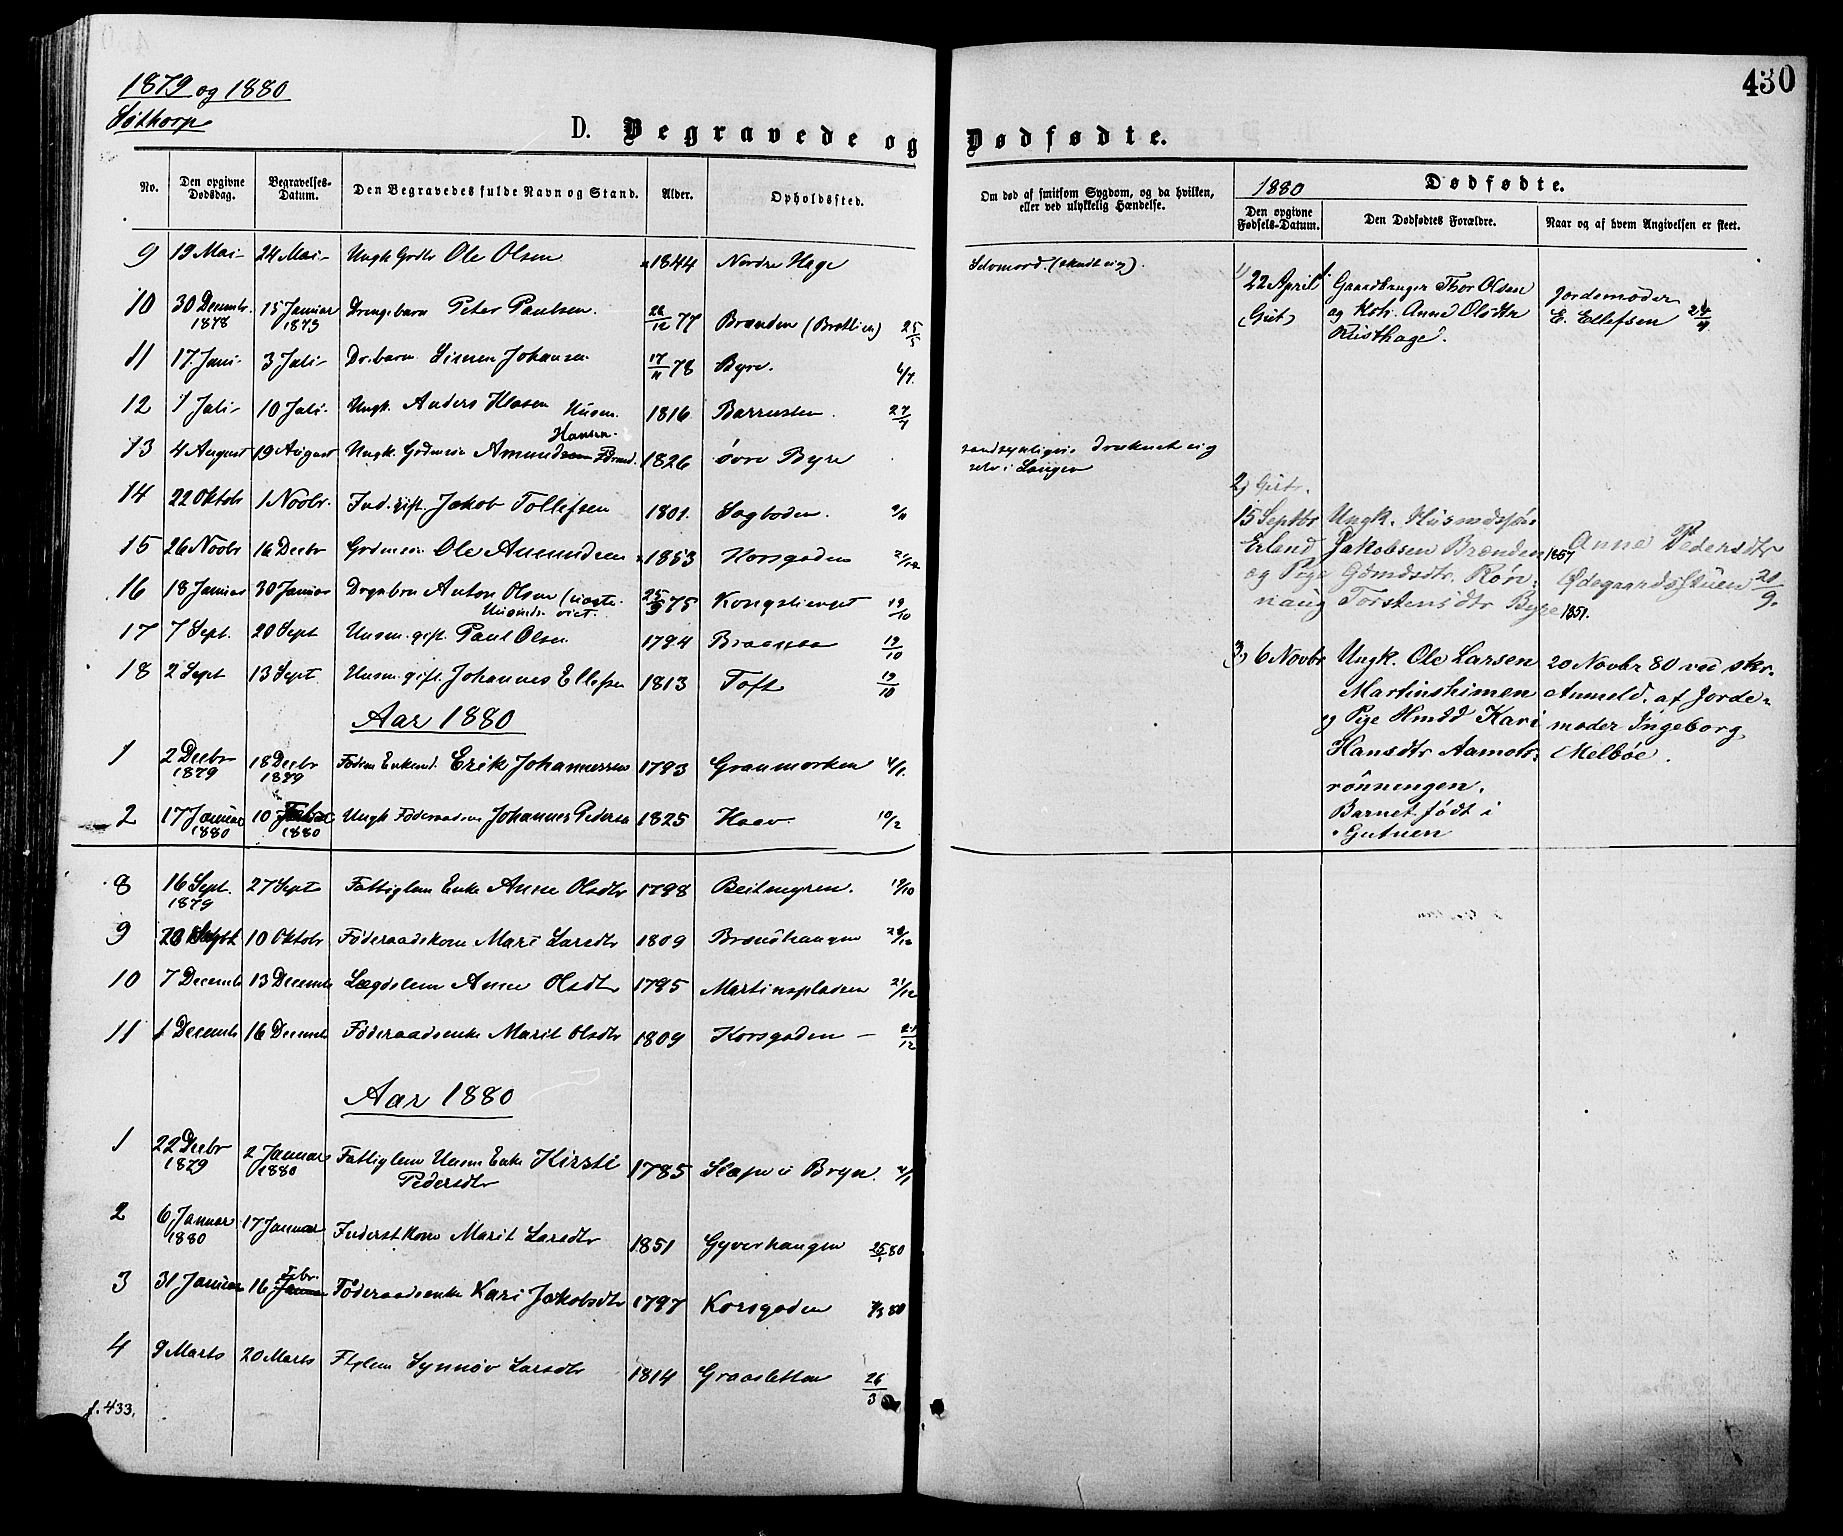 1879 og 1880
Søthorp
430
D. Begravede og Dødfødte.
No.
Den opgivne Dødsdag.
Begravelses-Datum.
Den Begravedes fulde Navn og Stand.
Alder.
Opholdssted.
Om død af smitsom Sygdom, og da hvilken,
eller ved ulykkelig Hændelse.
1880
Dødfødte.
Den opgivne Fødsels-Datum.
Den Dødfødtes Forældre.
Naar og af hvem Angivelsen er skeet.
9 19 Mai 24 Mai Ungk Ole Olsen 1844 Nordre Hage
10 30 Decembr 1878 15 Januar 1879 Drengebarn Peter Paulsen. 26/12 77 Brænden (Brætlien) 25/5
11 17 Juni 3 Juli Dr.barn Simen Johansen 17/11 78 Byre. 6/7
12 1 Juli 10 Juli Ungk. Anders Husm. 1816 27/7
Hansen
13 4 August 19 August Ungk. Gdmssøn Amundsen 1826 øvre Byre
14 22 Oktobr 1 Novbr. Ind. gift. Jakob Tollefsen 1801. Sagboden. 9/11
15 26 Novbr 16 Decbr Grdmssøn Ole Amundsen 1853 Korsgaden 21/12
16 18 Januar 30 Januar Drgebrn Anton Olsen 25/9 75 Kongslienget 19/10
17 7 Sept. 20 Sept Husm. gift. Paul Olsen 1794 19/10
18 2 Sept 13 Sept. Husm. gift. Johannes Ellefsen 1813 Toft 19/10
Aar 1880
1 2 Decbr 1879 18 Decbr 1879 Fødem Enkemd. Erik Johannessen 1793 Granmorken 4/1.
2 17 Januar 1880 10 Febr 1880 Ungk Føderaadsm Johannes Pedersen 1825 Haav 10/2
8 16 Sept. 1879 27 Sept Fattiglem Enke Anne Olsdtr 1798 19/10
9 20 Septbr 10 Oktobr Føderaadskone Mari Larsdtr 1809 Brændhaugen
10 7 Decembr 13 Decembr Lægdslem Anne Olsdtr 1785 Martinspladsen 21/12
11 1 Decembr 16 Decembr Føderaadsenke Marit Olsdtr 1809 Korsgaden — 21/12
Aar 1880
1 22 Decbr 1879 2 Januar 1880 Fattiglem Husm Enke Kirsti
Pedersdtr 1785 Bryn. 4/1
2 6 Januar 1880 17 Januar Inderstkone Marit Larsdtr 1851 Gyverhaugen 25/1 80
3 31 Januar 16 Febr. Januar Føderaadsenke Kari Jakobsdtr 1797 Korsgaden 7/3 80
4 9 Marts 20 Marts Ftglem Synnøv Larsdtr 1814 Graasletten 26/3
f. 433.
Selvmord (skudt sig).
sandsynligvis druknet sig
selv i Laugen
1) 22 April
(Gut)
Gaardbruger Thor Olsen
og Kone Anne Olsdtr
Rusthage.
Jordemoder
E. Ellefsen 24/4
2) Gut.
15 Septbr Ungk. Husmdssøn
Erland Jakobsen Brænden 1857
og Pige Gdmdsdtr. Røn-
naug Torstensdtr Byre 1851.
Anne Pedersdtr
Ødegaardsstuen 20/9.
3) 6 Novbr Ungk. Ole Larsen
Martinshimen
og Pige Hmdd Kari
Hansdtr Aamots-
rønningen.
Barnet født i
Gutuen
20 Novbr 80 ved skr.
Anmeld. af Jorde-
moder Ingeborg
Melbøe.